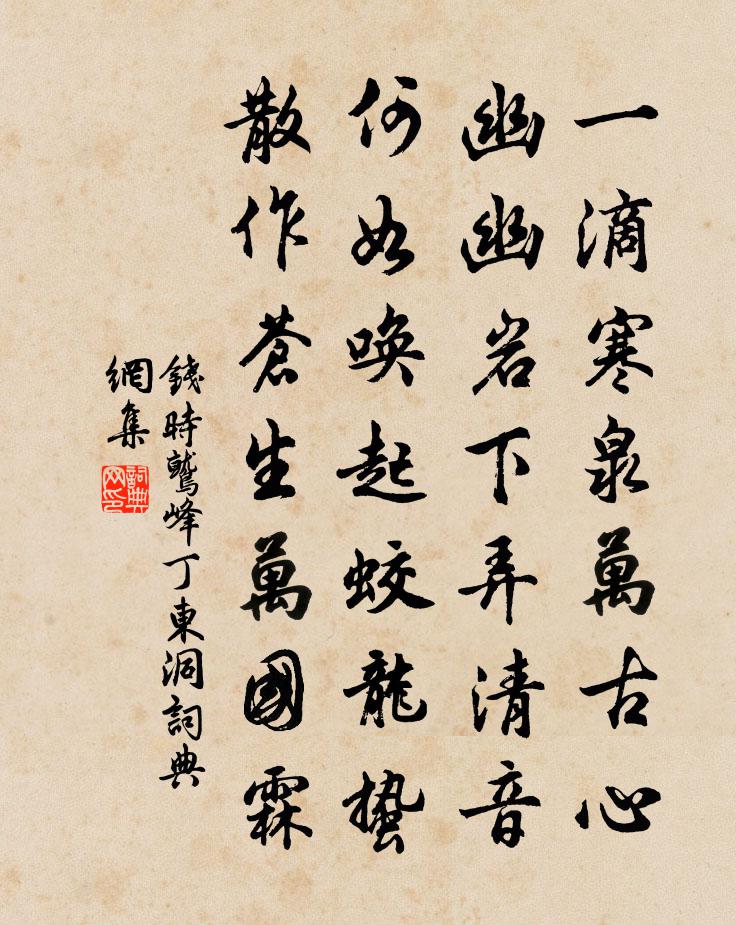 一滴寒泉萬古心
幽幽岩下弄清音
何如唤起蛟龍蟄
散作蒼生萬國霖
錢時鷲峰丁東洞詞典
網集
詞典
网印